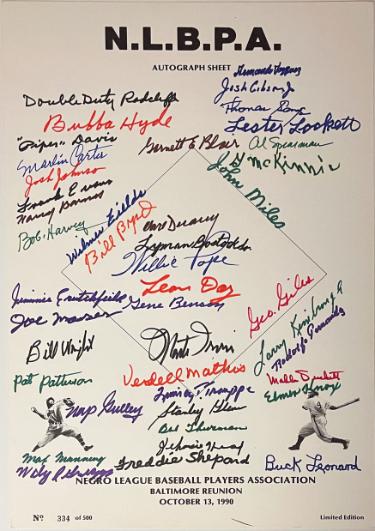 N.L.B.P.A.
AUTOGRAPH SHEET
Double Duty Radcliffe
Josh Gibson Jr
Bubba Hyde
Lester Lockett
"Piper" Davis
Garnett E Blair
Al Spearman
Marlin Carter
McKinnis
Josh Johnson
John Miles
Frank Evans
Harry Barnes
Bob Harvey
Wilmer Fields
Bill Byrd
Lyman Bostock Sr
Willie Pope
Leon Day
Jimmie Crutchfield
Gene Benson
Geo. Giles
Joe
Larry Kimbrough
Rodolfo Fernandez
Bill Wright
Monte Irvin
Verdell Mathis
Mahlon Duckett
Pat Patterson
Quincy Trouppe
Elmer Knox
Nap Gulley
Stanley Glenn
Max Manning
Freddie Shepard
Buck Leonard
NEGRO LEAGUE BASEBALL PLAYERS ASSOCIATION
BALTIMORE REUNION
OCTOBER 13, 1990
No 334 of 500
Limited Edition